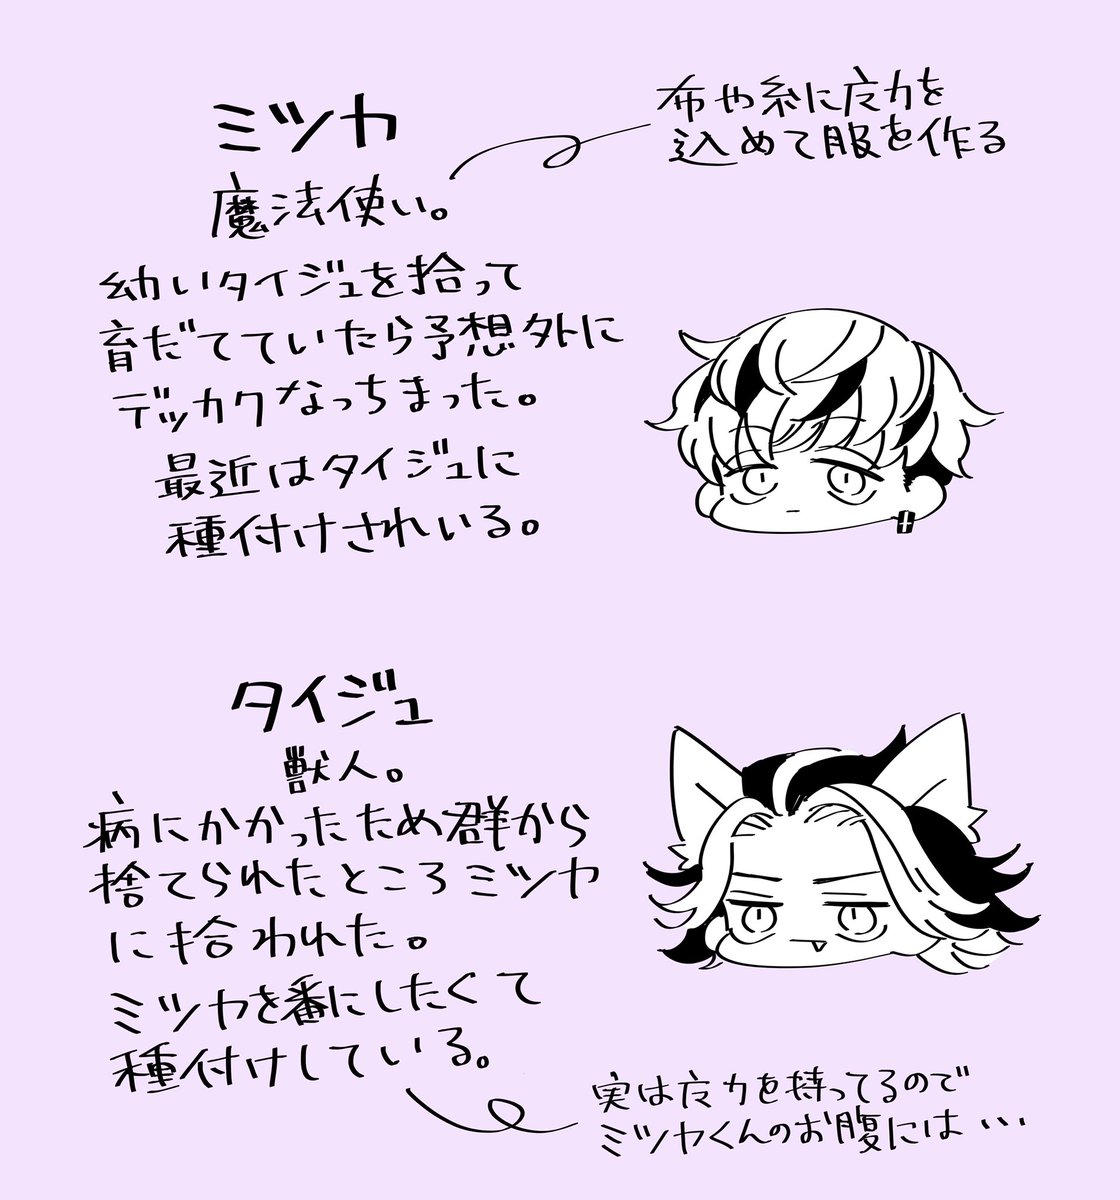 ミツヤ
魔法使い。
布や糸に广力を
込めて服を作る
幼いタイジュを拾って
育だてていたら予想外に
デッカクなっちまった。
最近はタイジュに
種付けされいる。
タイジュ
獣人。
病にかかったため群から
捨てられたところミツヤ
に拾われた。
ミツヤを番にしたくて
種付けしている。
実は广力を持ってるので
ミツヤくんのお腹には…